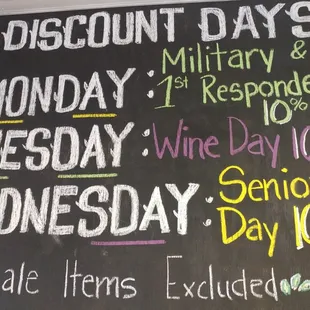 DISCOUNT DAYS
MONDAY : Military &
1st Responde
10%
ESDAY : Wine Day 10
DNESDAY : Senio
Day 10
ale Items Excluded